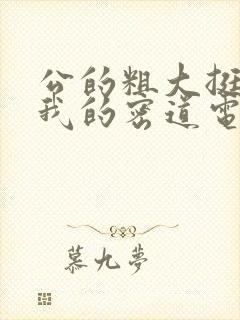 公的粗大挺
我的密道電
慕九夢